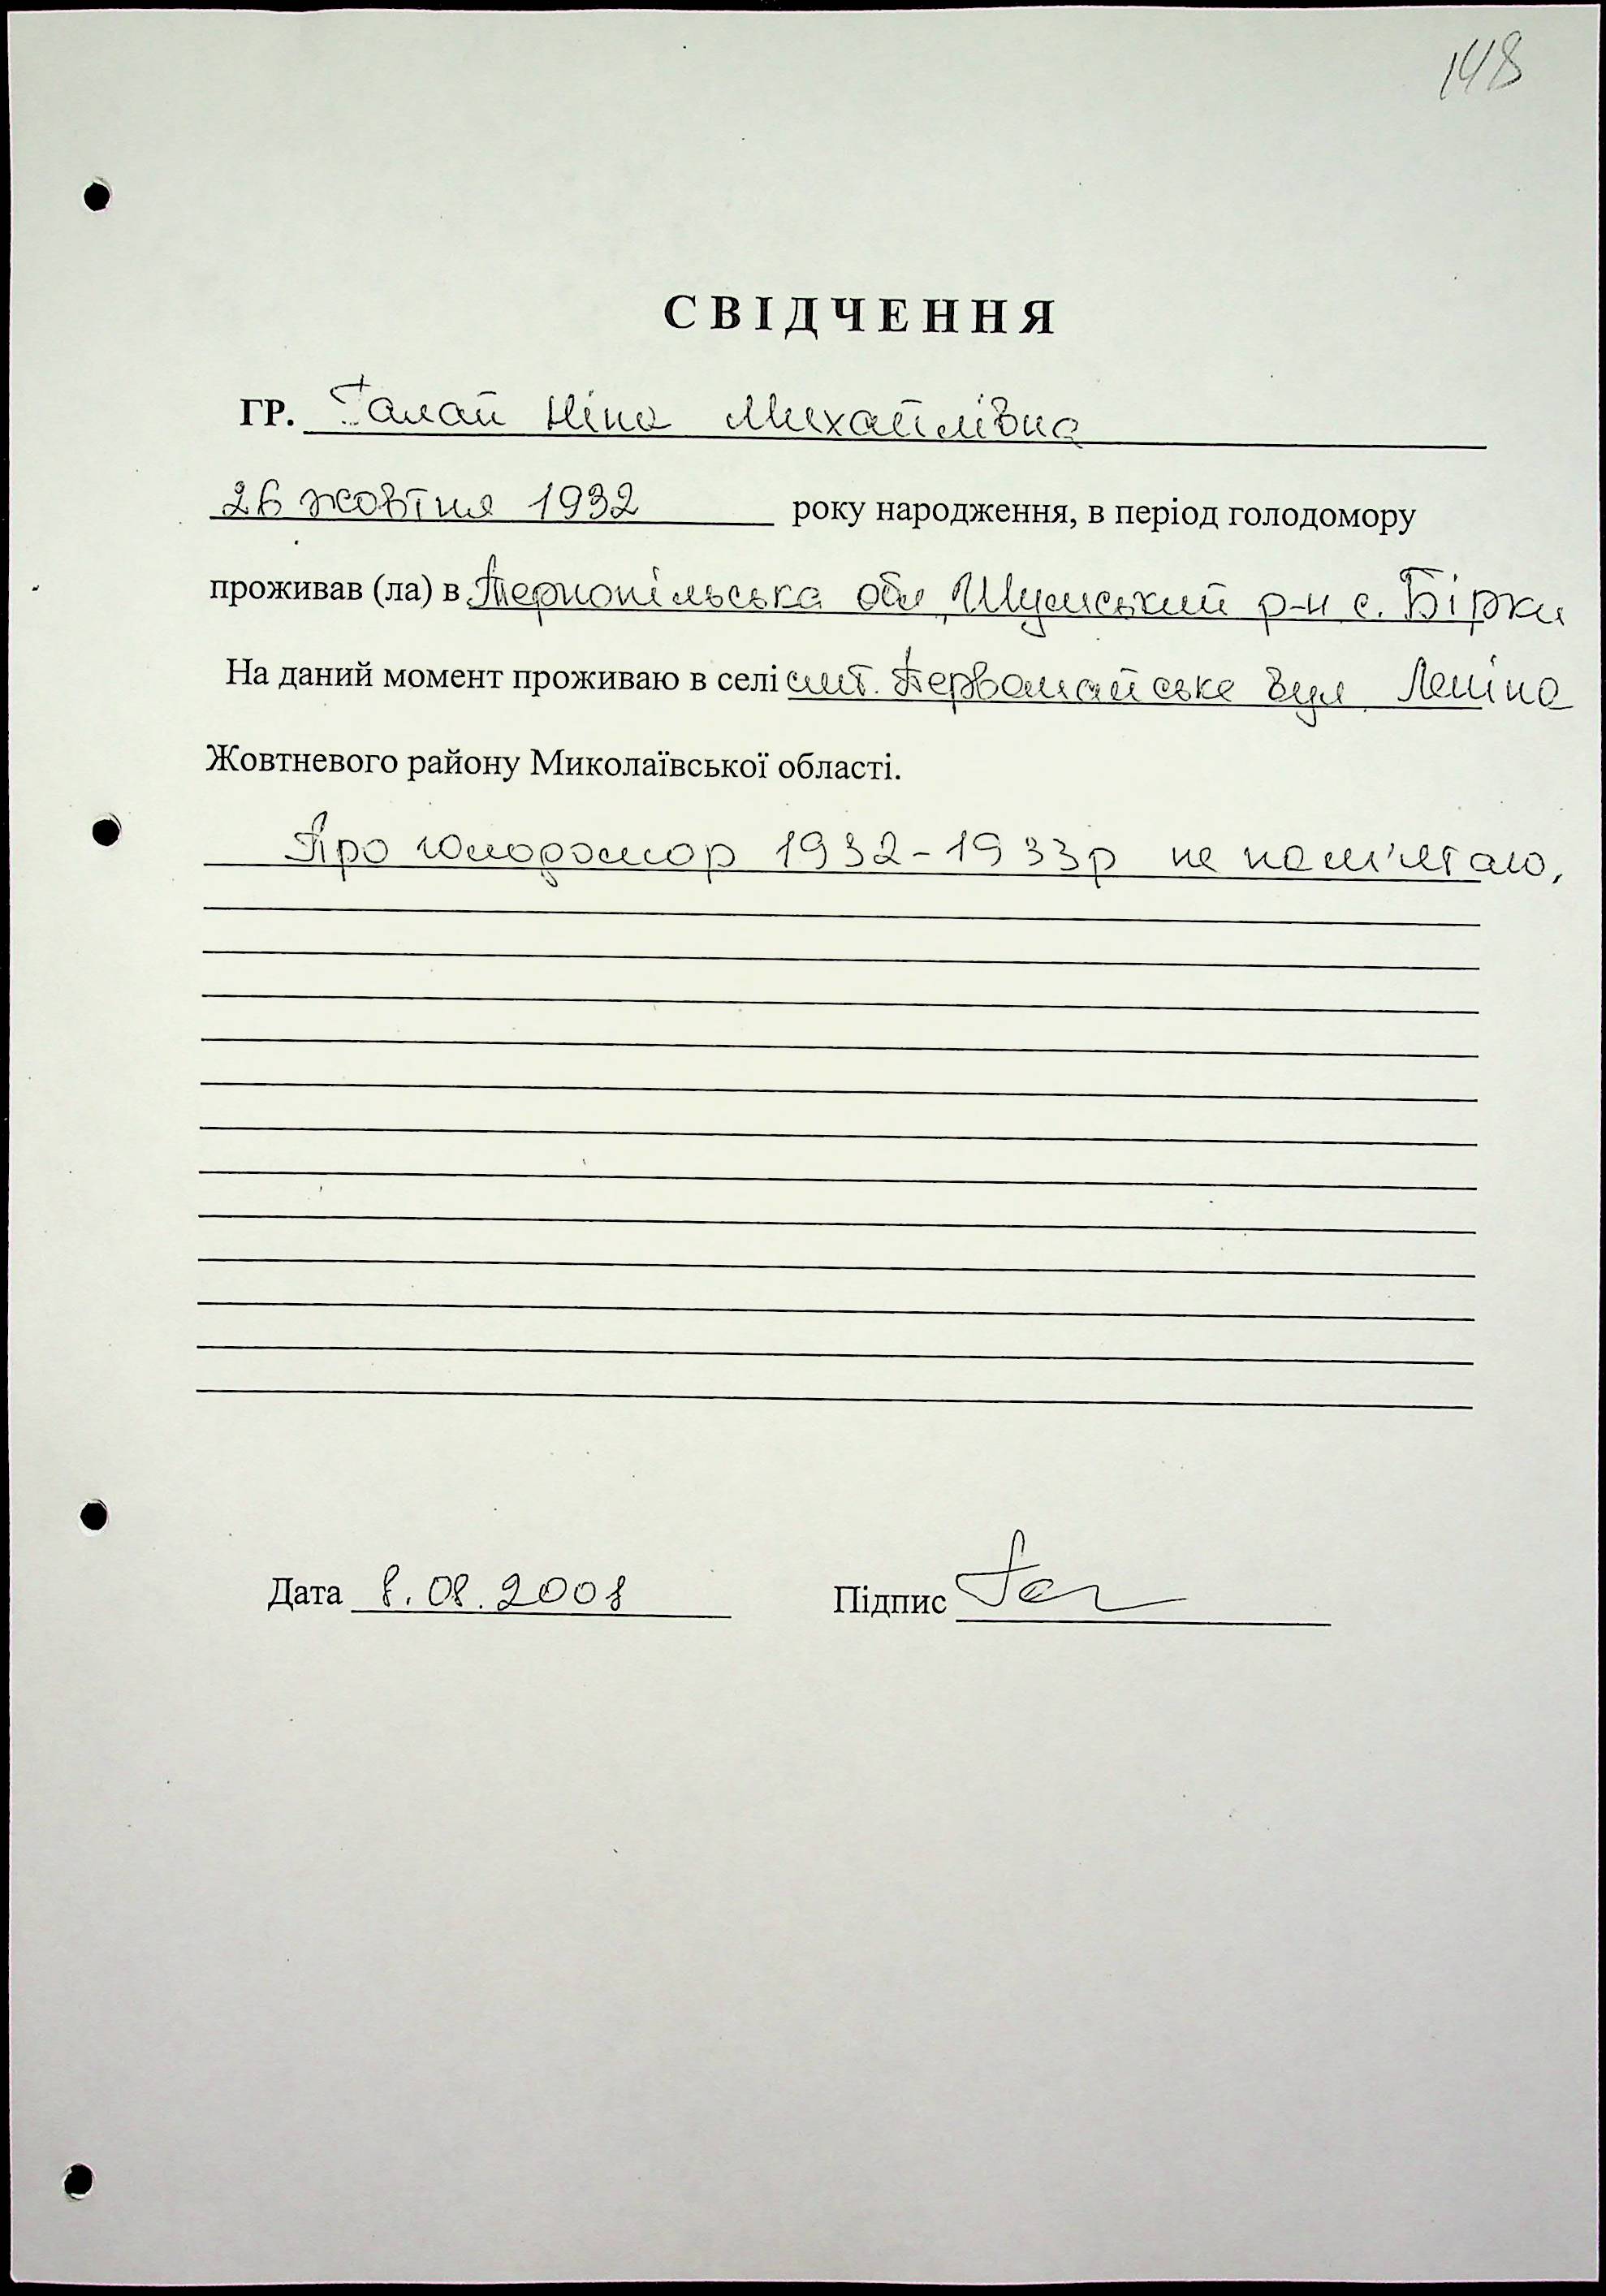 148
СВІДЧЕННЯ
ГР. Галай Ніна Михайлівна
26 жовтня 1932 року народження, в період голодомору
проживав (ла) в Тернопільська обл, Шумський р-н с. Бірки
На даний момент проживаю в селі смт. Первомайське вул. Леніна
Жовтневого району Миколаївської області.
Про голодомор 1932-1933р не пам'ятаю,
Дата 8.08.2008 Підпис